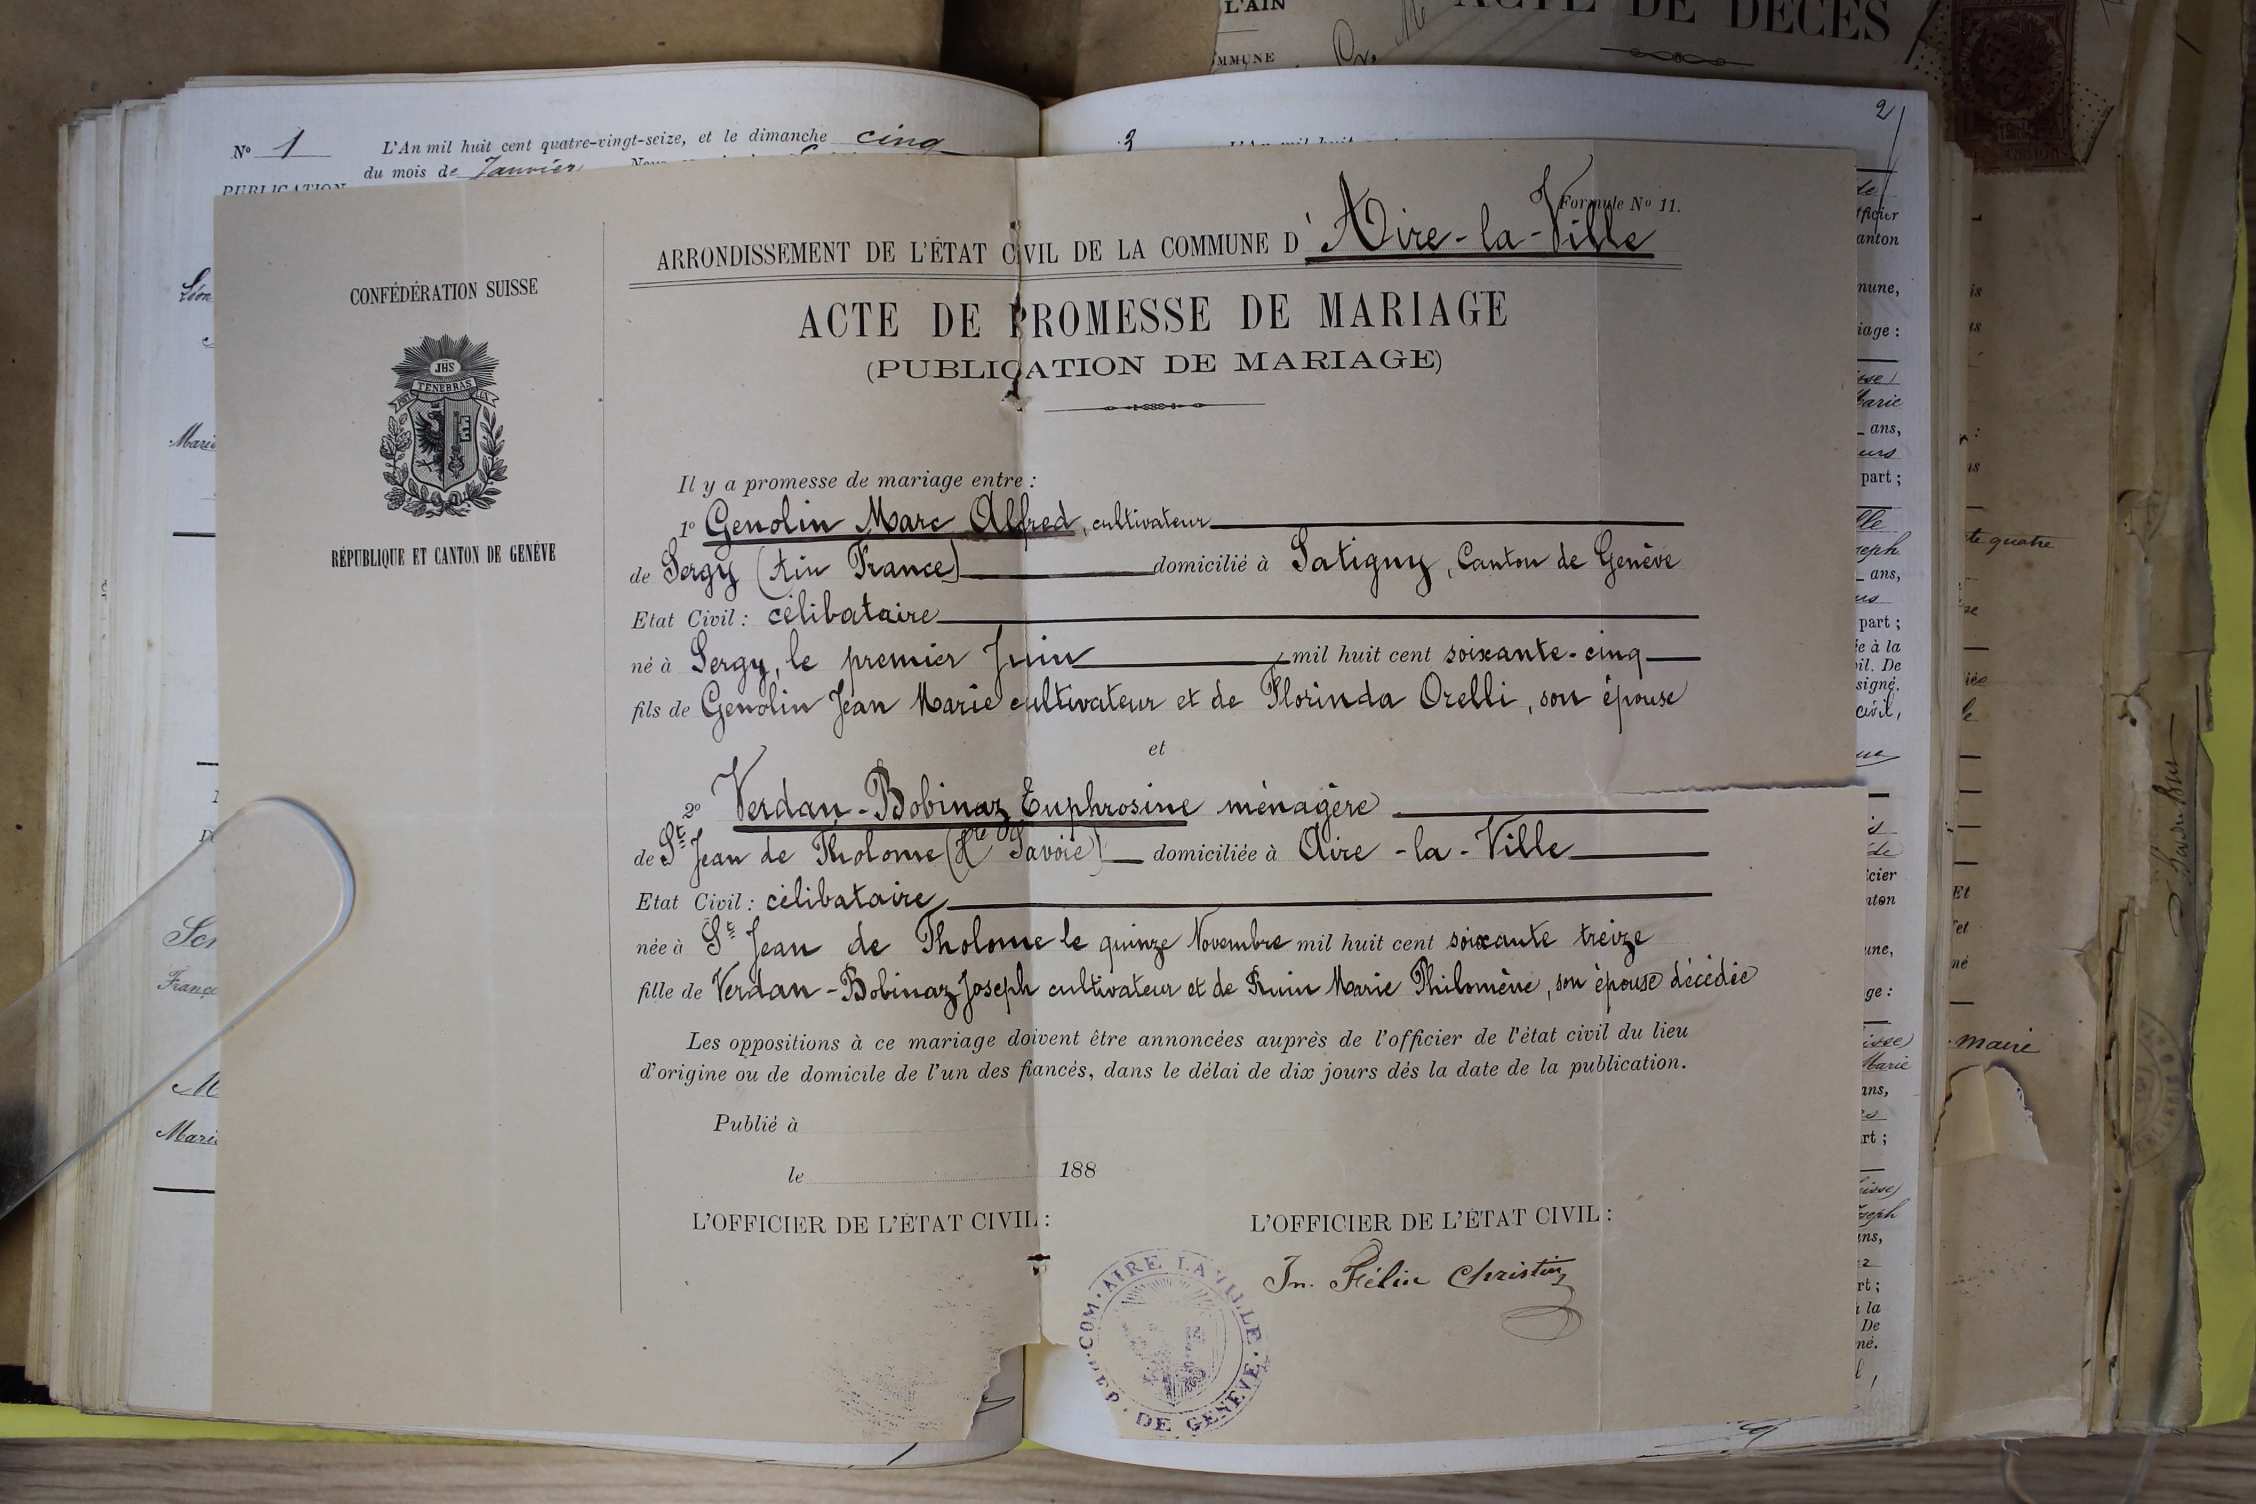 L'AIN
ACTE DE DÉCÈS
MMUNE
2
No 1 L'An mil huit cent quatre-vingt-seize, et le dimanche cinq
du mois de Janvier
PUBLICATION
3
Formule No 11.
ARRONDISSEMENT DE L'ÉTAT CIVIL DE LA COMMUNE D'Aire-la-Ville
CONFÉDÉRATION SUISSE
JHS
POST TENEBRAS LUX
RÉPUBLIQUE ET CANTON DE GENÈVE
ACTE DE PROMESSE DE MARIAGE
(PUBLICATION DE MARIAGE)
Il y a promesse de mariage entre :
1o Genolin Marc Alfred, cultivateur
de Sergy (Ain France) domicilié à Satigny, Canton de Genève
Etat Civil : célibataire
né à Sergy, le premier Juin mil huit cent soixante-cinq
fils de Genolin Jean Marie cultivateur et de Florinda Orelli, son épouse
et
2o Verdan-Bobinaz Euphrosine ménagère
de St Jean de Tholome (Hte Savoie) domiciliée à Aire-la-Ville
Etat Civil : célibataire
née à St Jean de Tholome le quinze Novembre mil huit cent soixante treize
fille de Verdan-Bobinaz Joseph cultivateur et de Ruin Marie Philomène, son épouse décédée
Les oppositions à ce mariage doivent être annoncées auprès de l'officier de l'état civil du lieu
d'origine ou de domicile de l'un des fiancés, dans le délai de dix jours dès la date de la publication.
Publié à
le 188
L'OFFICIER DE L'ÉTAT CIVIL : L'OFFICIER DE L'ÉTAT CIVIL :
Jn. Félix Christin
COM. AIRE LA VILLE. REP. DE GENÈVE